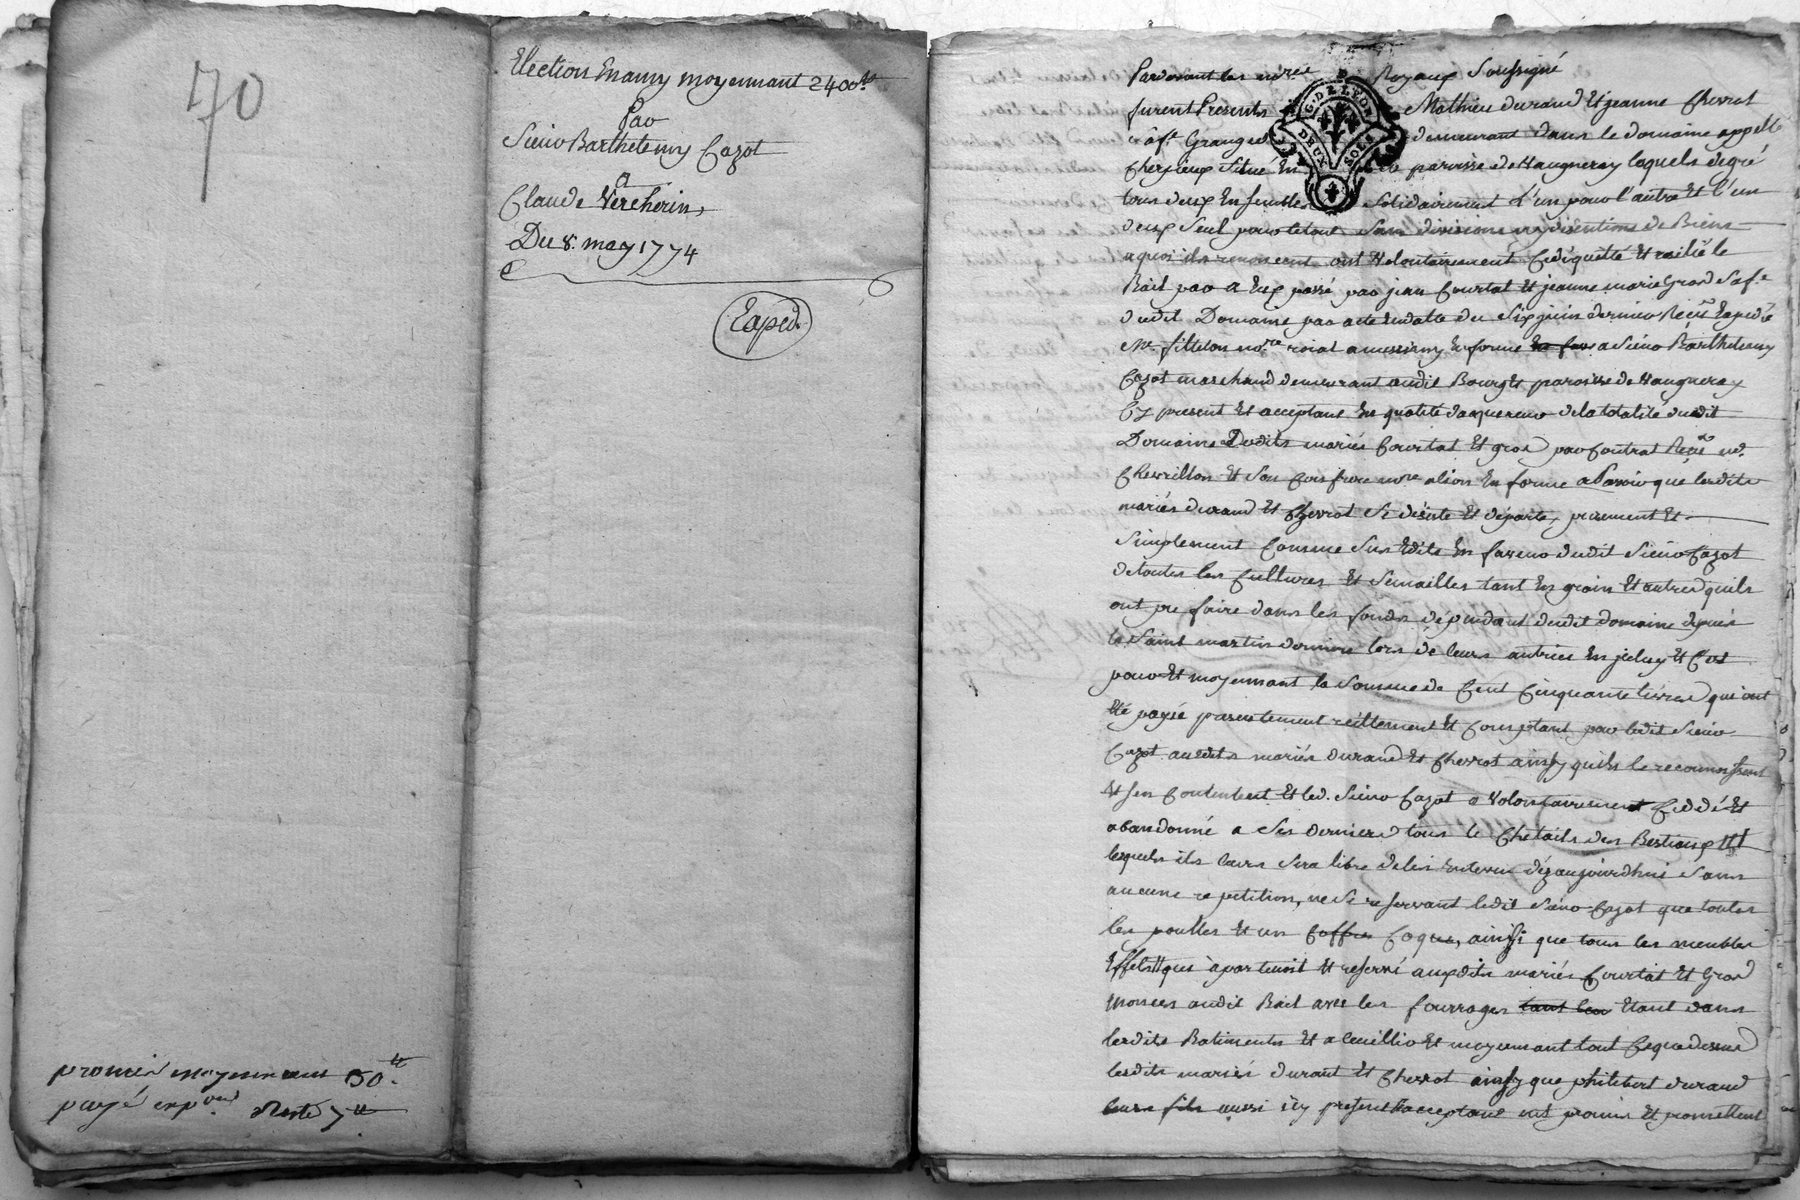 70
Election Enamy moyennant 2400ᵗᵗ
Par
Sieur Barthelemy Cazot
A
Claude Vercherin,
Du 8. may 1774
Exped.
promis moyennant 50ᵗᵗ
payé reste 7ᵗᵗ
Pardevant les nores Royaux Soussigné
G. DE LYON
DEUX SOLS
furent Presents Mathieu durand Et jeanne Cherrot
sa fe. Granger demeurant dans le domaine appellé
Situé En paroisse de Vaugneray lequels degré
tous deux Ensembles Solidairement L'un pour l'autre Et l'un
deux Seul pour le tout Sans divisions ny discutions de Biens
a quoi ils renoncent ont Volontairement Cedé quitté Et le
Bail par a Eux passé par jean Courtat Et jeanne marie Gros Sa fe.
dudit Domaine par acte Endatte du Six juin dernier Expédié
Me. nore. roial a messimy En forme a Sieur Barthelemy
Cazot marchand demeurant audit Bourg Et paroisse de Vaugneray
Cy present Et acceptant En qualité daquereur dela totalité dudit
Domaine Dudits mariés Courtat Et gros par Contrat Me.
Chevrillon Et Son Confrere nore a lion En forme a Savoir que lesdits
mariés durand Et Cherrot Se désiste Et départe, purement Et
Simplement Comme Sus Edits En faveur dudit Sieur Cazot
de toutes les Cultures Et Semailles tant En grain Et autres quils
ont pu faire dans les fonds dépendant dudit domaine depuis
la Saint martin derniere lors de leurs entrées En jceluy Et C'est
pour Et moyennant la Somme de Cent Cinquante livres qui ont
Eté payée presentement réellement Et Comptant par ledit Sieur
Cazot audits mariés durand Et Cherrot ainsy quils le reconnoissent
Et sen Contentent Et led. Sieur Cazot a Volontairement Ceddé Et
abandonné a Ses derniers tous le Chetails des Bestiaux
lesquels ils leurs Sera libre deles Enlever dèz aujourdhui Sans
aucune repetition, ne Se reservant ledit Sieur Cazot que toutes
les poulles Et un Coffre ainsi que tous les meubles
Effets qui apartenoit Et reservé auxdits mariés Courtat Et Gros
audit Bail avec les fourrages tant les Etant dans
lesdits Batiments Et a Ceuillir Et moyennant tout Ceque dessus
lesdits mariés durant Et Cherrot ainsy que philibert durand
leurs fils aussi icy present Et acceptant ont promis Et promettent